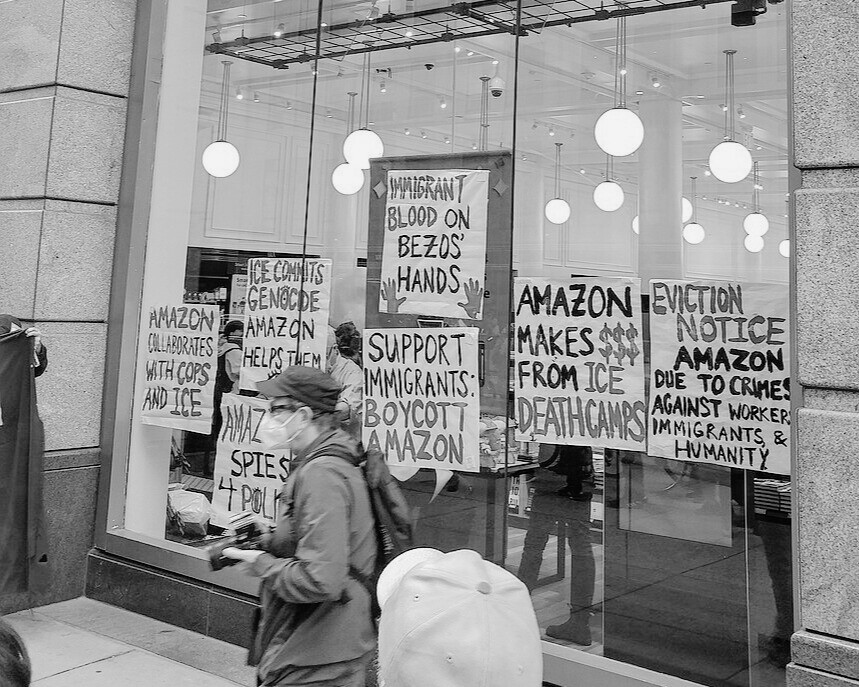 AMAZON
COLLABORATES
WITH COPS
AND ICE
ICE COMMITS
GENOCIDE
AMAZON
HELPS THEM
AMAZ
SPIES
4 POLI
IMMIGRANT
BLOOD ON
BEZOS'
HANDS
SUPPORT
IMMIGRANTS:
BOYCOTT
AMAZON
AMAZON
MAKES $$$
FROM ICE
DEATHCAMPS
EVICTION
NOTICE
AMAZON
DUE TO CRIMES
AGAINST WORKERS
IMMIGRANTS, &
HUMANITY